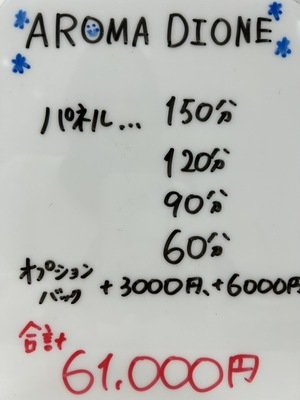 AROMA DIONE
パネル... 150分
120分
90分
60分
オプション
バック +3000円、+6000円
合計
61.000円